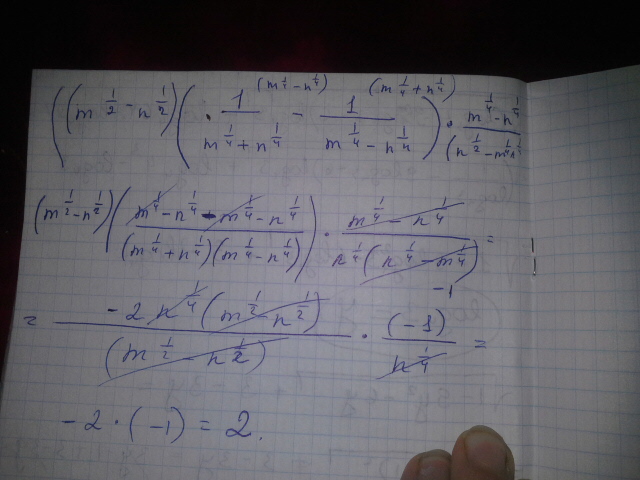 (m^{1/4} - n^{1/4}) (m^{1/4} + n^{1/4})
((m^{1/2} - n^{1/2}) (1/(m^{1/4} + n^{1/4}) - 1/(m^{1/4} - n^{1/4})) · (m^{1/4} - n^{1/4})/(n^{1/2} - m^{1/4} n^{1/4}
(m^{1/2} - n^{1/2}) ((m^{1/4} - n^{1/4} - m^{1/4} - n^{1/4})/((m^{1/4} + n^{1/4})(m^{1/4} - n^{1/4}))) · (m^{1/4} - n^{1/4})/(n^{1/4}(n^{1/4} - m^{1/4})) =
-1
= (-2 n^{1/4} (m^{1/2} - n^{1/2}))/((m^{1/2} - n^{1/2})) · (-1)/n^{1/4} =
-2 · (-1) = 2.